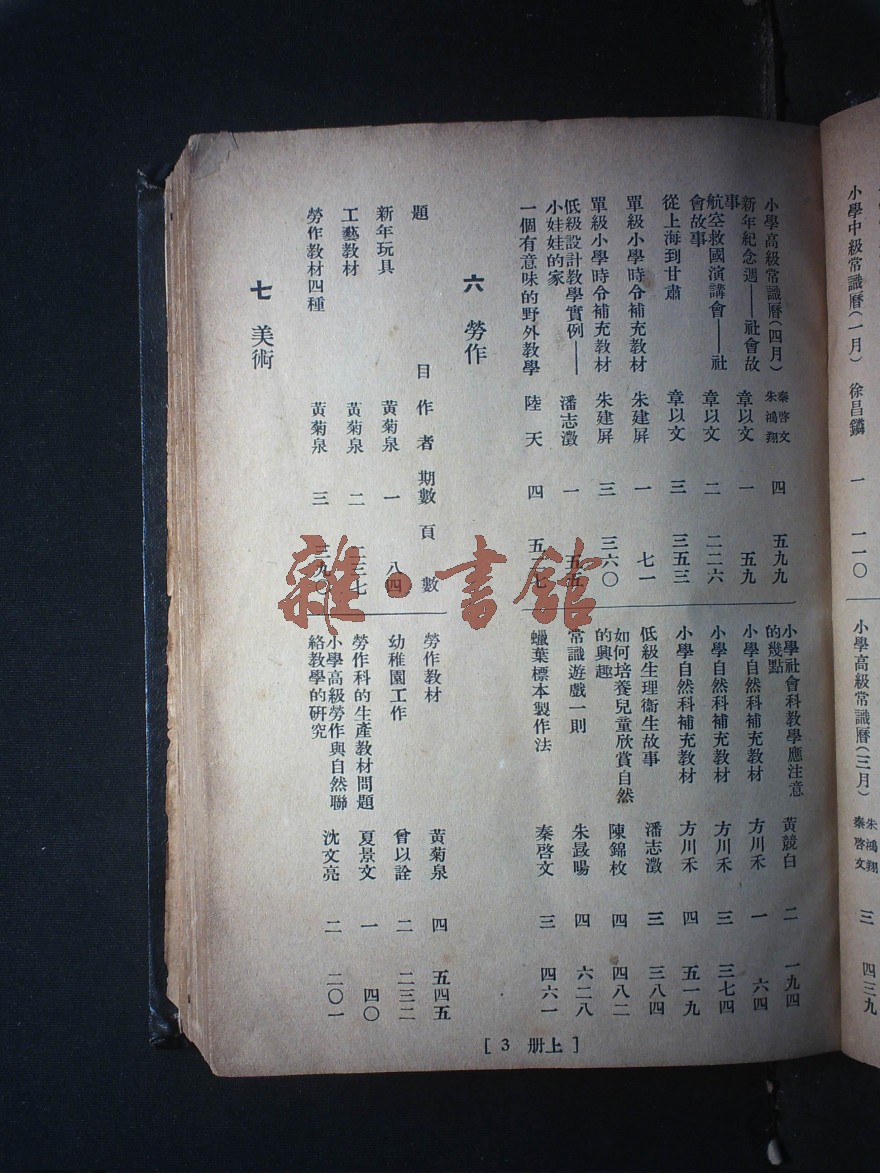 小學中級常識曆(一月) 徐昌鏻 一 一一〇
小學高級常識曆(三月) 朱鴻翔 秦啓文 三 四三九
小學高級常識曆(四月) 秦啓文 朱鴻翔 四 五九九
新年紀念週——社會故事 章以文 一 五九
航空救國演講會——社會故事 章以文 二 二二六
從上海到甘肅 章以文 三 三五三
單級小學時令補充教材 朱建屏 一 七一
單級小學時令補充教材 朱建屏 三 三六〇
低級設計教學實例——小娃娃的家 潘志澂 一
一個有意味的野外教學 陸天 四
小學社會科教學應注意的幾點 黃競白 二 一九四
小學自然科補充教材 方川禾 一 六四
小學自然科補充教材 方川禾 三 三七四
小學自然科補充教材 方川禾 四 五一九
低級生理衞生故事 潘志澂 三 三八四
如何培養兒童欣賞自然的興趣 陳錦枚 四 四八二
常識遊戲一則 朱晸暘 四 六二八
蠟葉標本製作法 秦啓文 三 四六一
六 勞作
題 目 作者 期數 頁數
新年玩具 黃菊泉 一 八四
工藝教材 黃菊泉 二
勞作教材四種 黃菊泉 三
勞作教材 黃菊泉 四 五四五
幼稚園工作 曾以詮 二 二三二
勞作科的生產教材問題 夏景文 一 四〇
小學高級勞作與自然聯絡教學的研究 沈文亮 二 二〇一
七 美術
[3 册上]
雜·書館